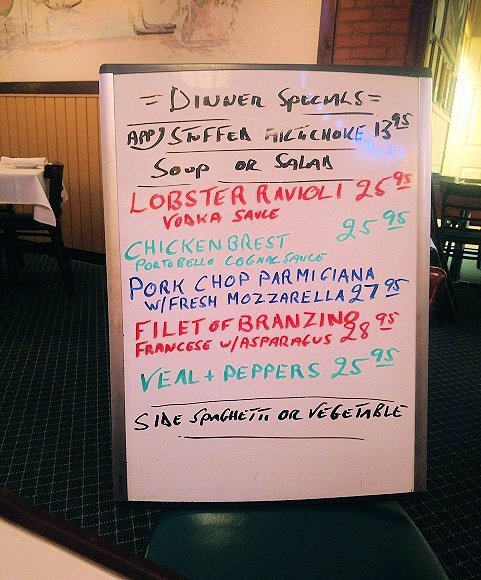 = DINNER SPECIALS =
(APP) STUFFED ARTICHOKE 13.95
SOUP OR SALAD
LOBSTER RAVIOLI 26.95
VODKA SAUCE
CHICKEN BREST 25.95
PORTOBELLO COGNAC SAUCE
PORK CHOP PARMIGIANA
W/FRESH MOZZARELLA 27.95
FILET OF BRANZINO
FRANCESE W/ASPARAGUS 28.95
VEAL + PEPPERS 25.95
SIDE SPAGHETTI OR VEGETABLE